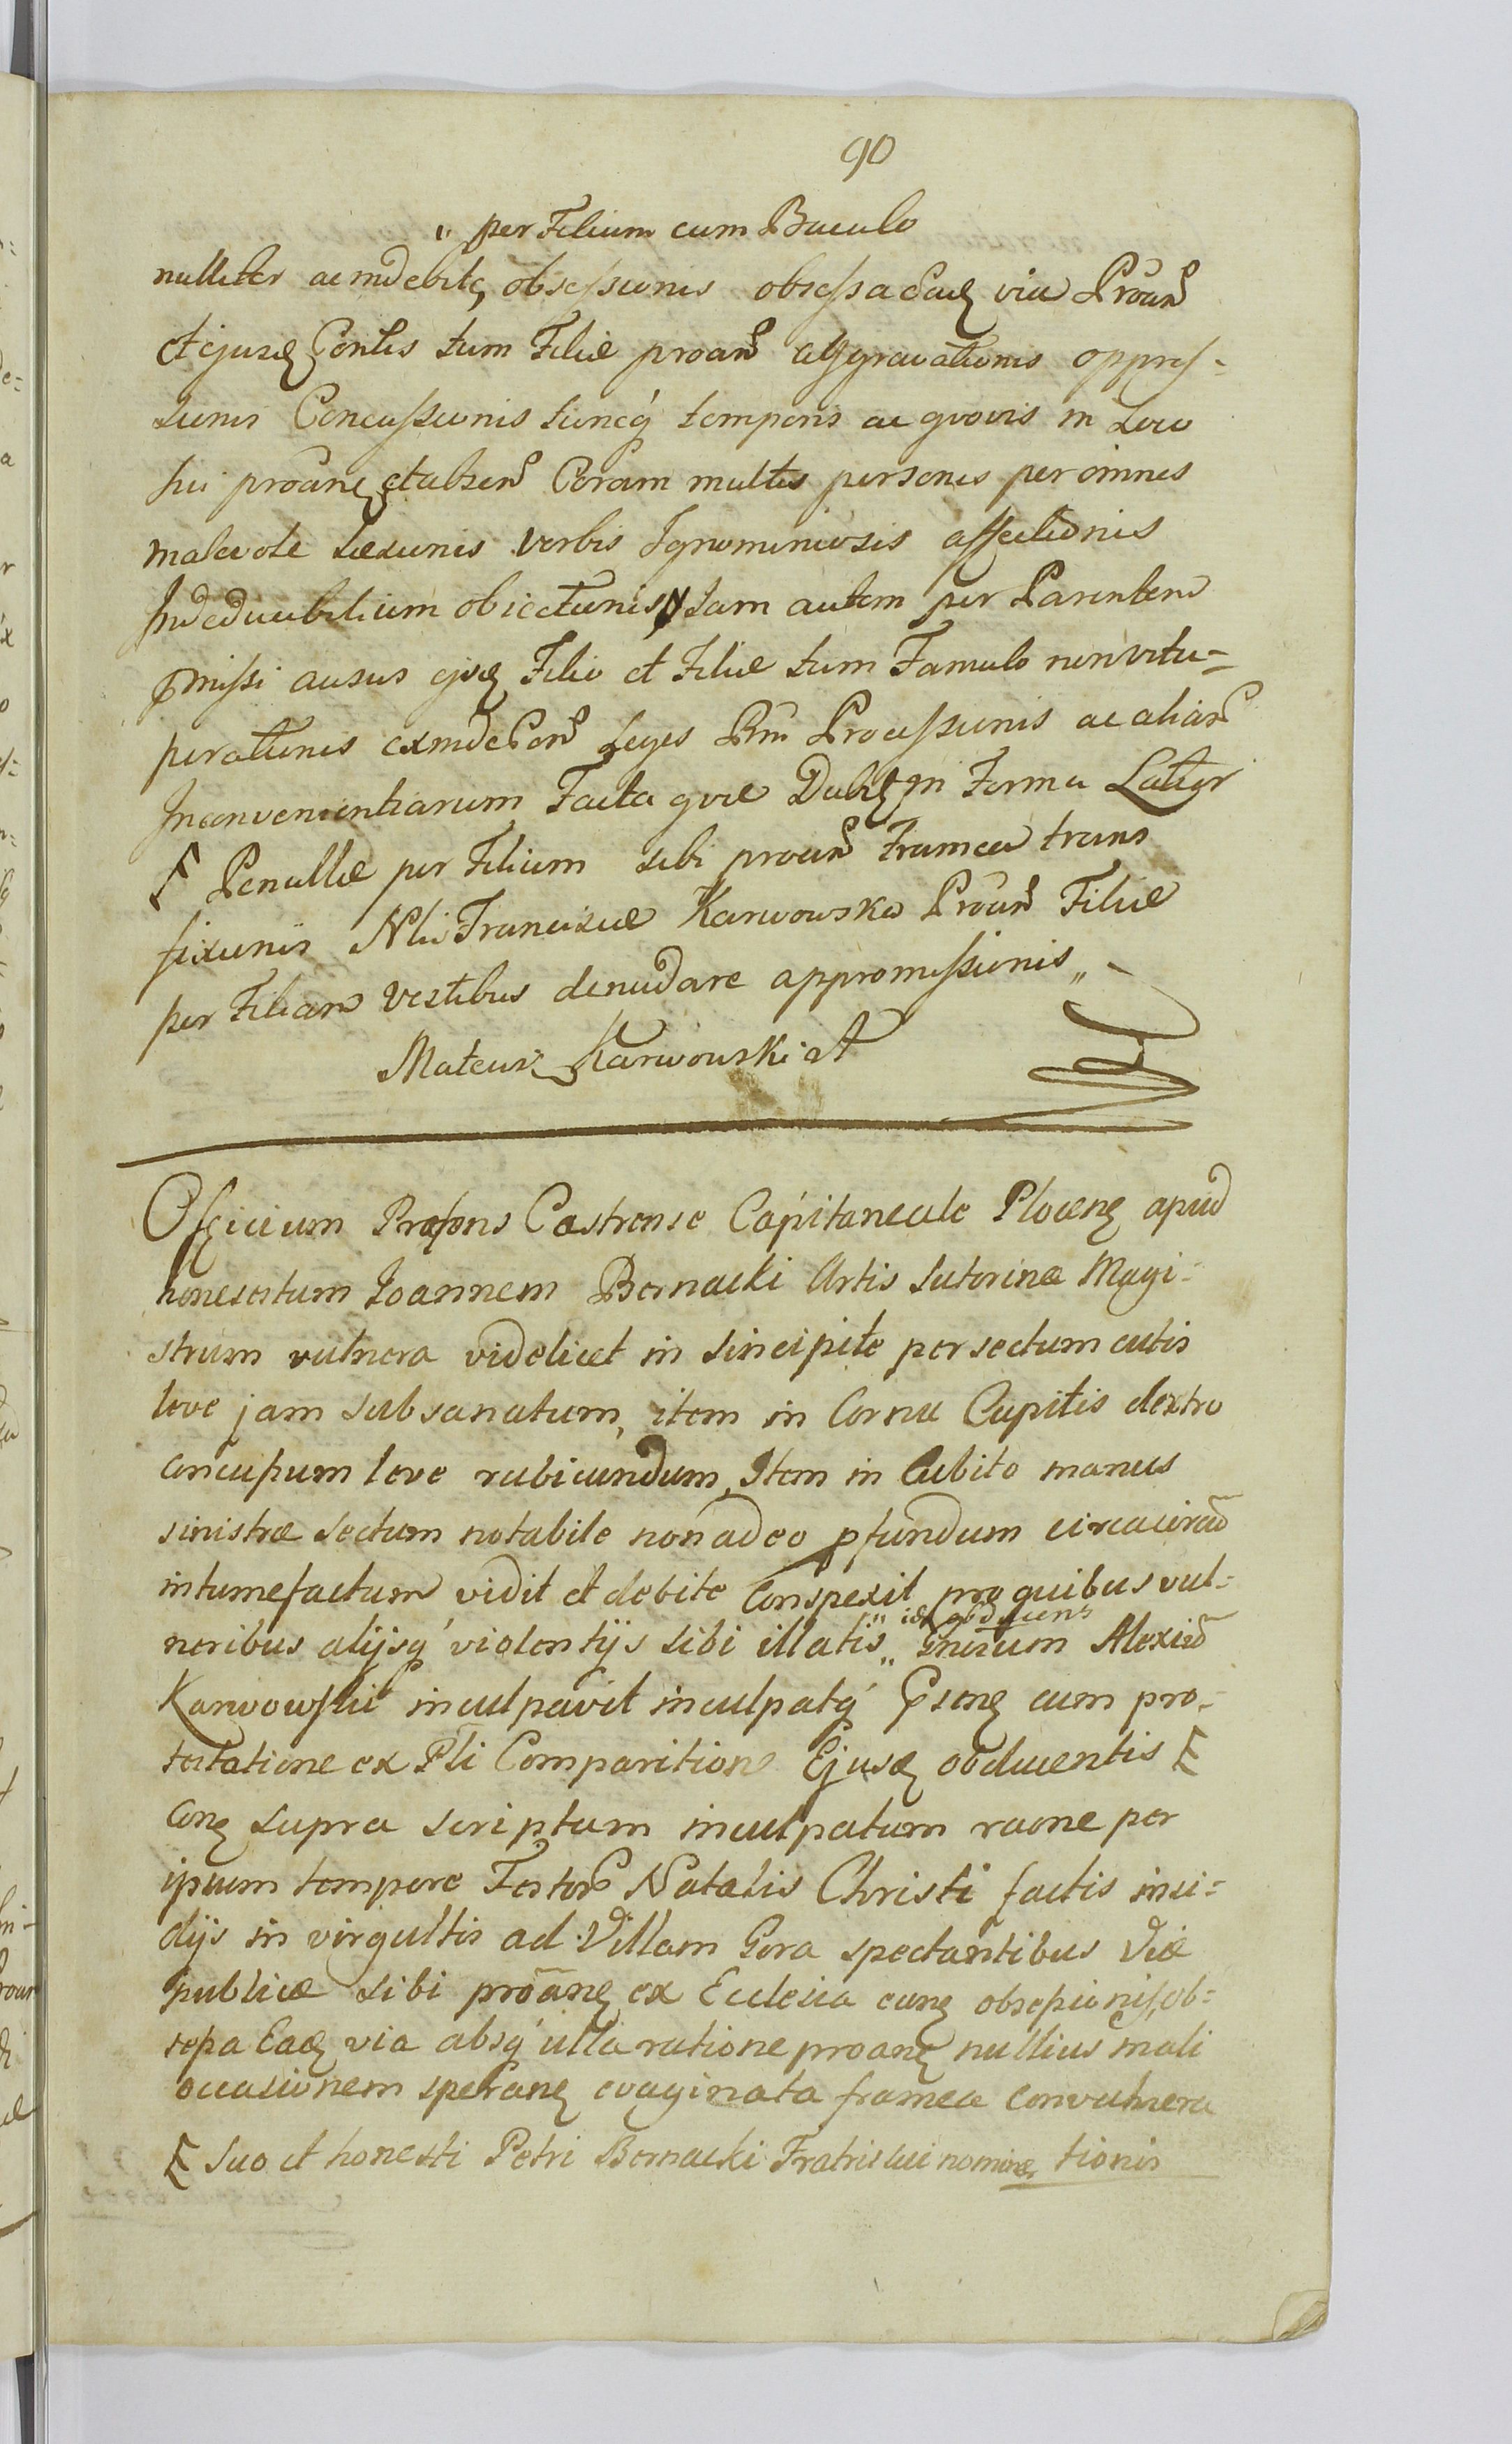 90
" per Filium cum Baculo
nulliter ac indebite obsessionis obsessa eadē via Proan̄
et ejusdē Contis tum Filiæ proan̄ aggravationis oppres-
sionis Concussionis tuncq́ temporis ac quovis in Loco
sui proanē et absen̄ Coram multis personis per omnes
malevole læsionis verbis Ignominiosis affectionis
Indeducibilium objectionis Jam autem per Parentem
p̄missi ausus ejusdē Filio et Filiæ tum Famulo non vitu-
perationis ex inde Con̄ Leges Rn̄i Processionis ac aliar̄
Inconvenientiarum Facta quæ Dabit̄ in Forma Latior
Ϝ Penullæ per Filium sibi proan̄ Framea trans
fixionis Nlis Franciscæ Karwowska Proan̄ Filiæ
per Filiam Vestibus denudare appromissionis „ -
Mateusz Karwowski A
Officium Præsens Castrense Capitaneale Plocenē apud
honestum Joannem Bernacki Artis Sutorinæ Magi-
strum vulnera videlicet in sincipite persectum cutis
leve jam subsanatum, item in Cornu Capitis dextro
concusum leve rubicundum, Item in Cubito manus
sinistræ sectum notabile non adeo pfundum circacirca͞
intumefactum vidit et debite Conspexit pro quibus vul-
idē obducens
neribus alijsq́ violentijs sibi illatis „ Gnerosum Alexiu͞
Karwowski inculpavit inculpatq́ Psenē cum pro-
testatione ex Pti Comparitione Ejusdē obducentis Ϝ
Conē supra scriptum inculpatum raone per
ipsum tempore Festor̄ Natalis Christi factis insi-
dijs in virgultis ad Villam Gora spectantibus Viæ
publicæ sibi proanē ex Ecclesia eunē obsessionis, ob-
sessa Eadē via absq́ ulla ratione proanē nullius mali
occasionem speranē evaginata framea convulnera
Ϝ suo et honesti Petri Bernacki Fratris sui nomine tionis